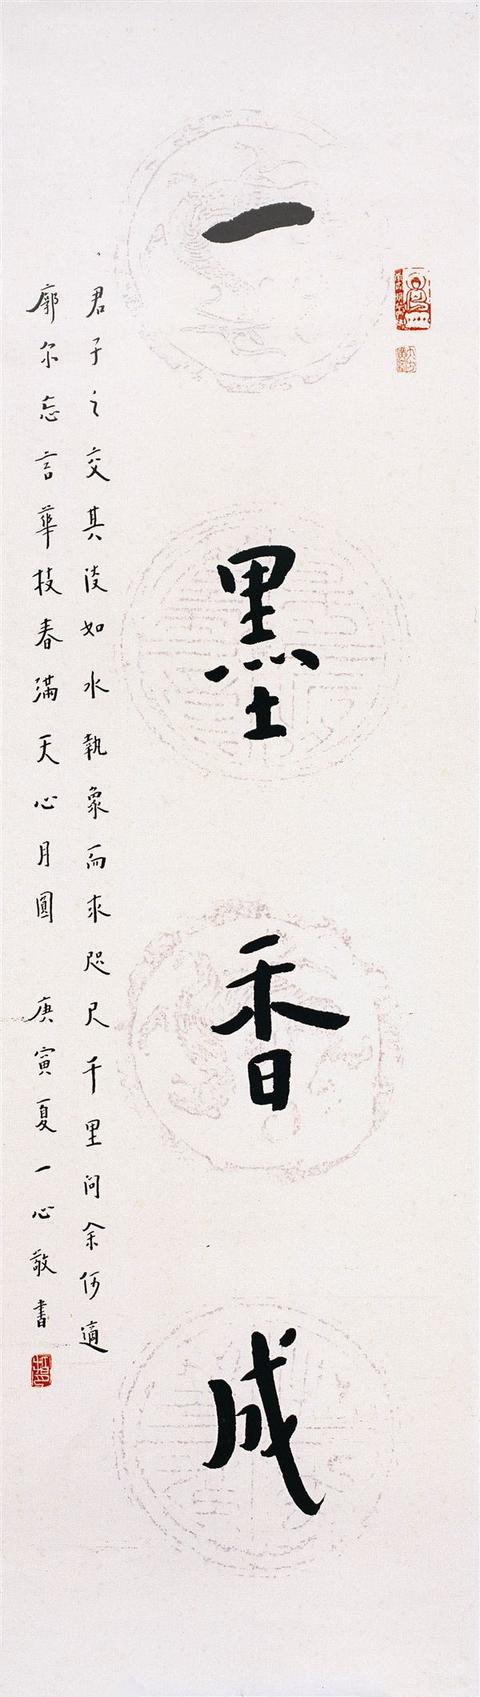 一墨香成
君子之交其淡如水執象而求咫尺千里問余何適
廓尔忘言華枝春滿天心月圓 庚寅夏一心敬書